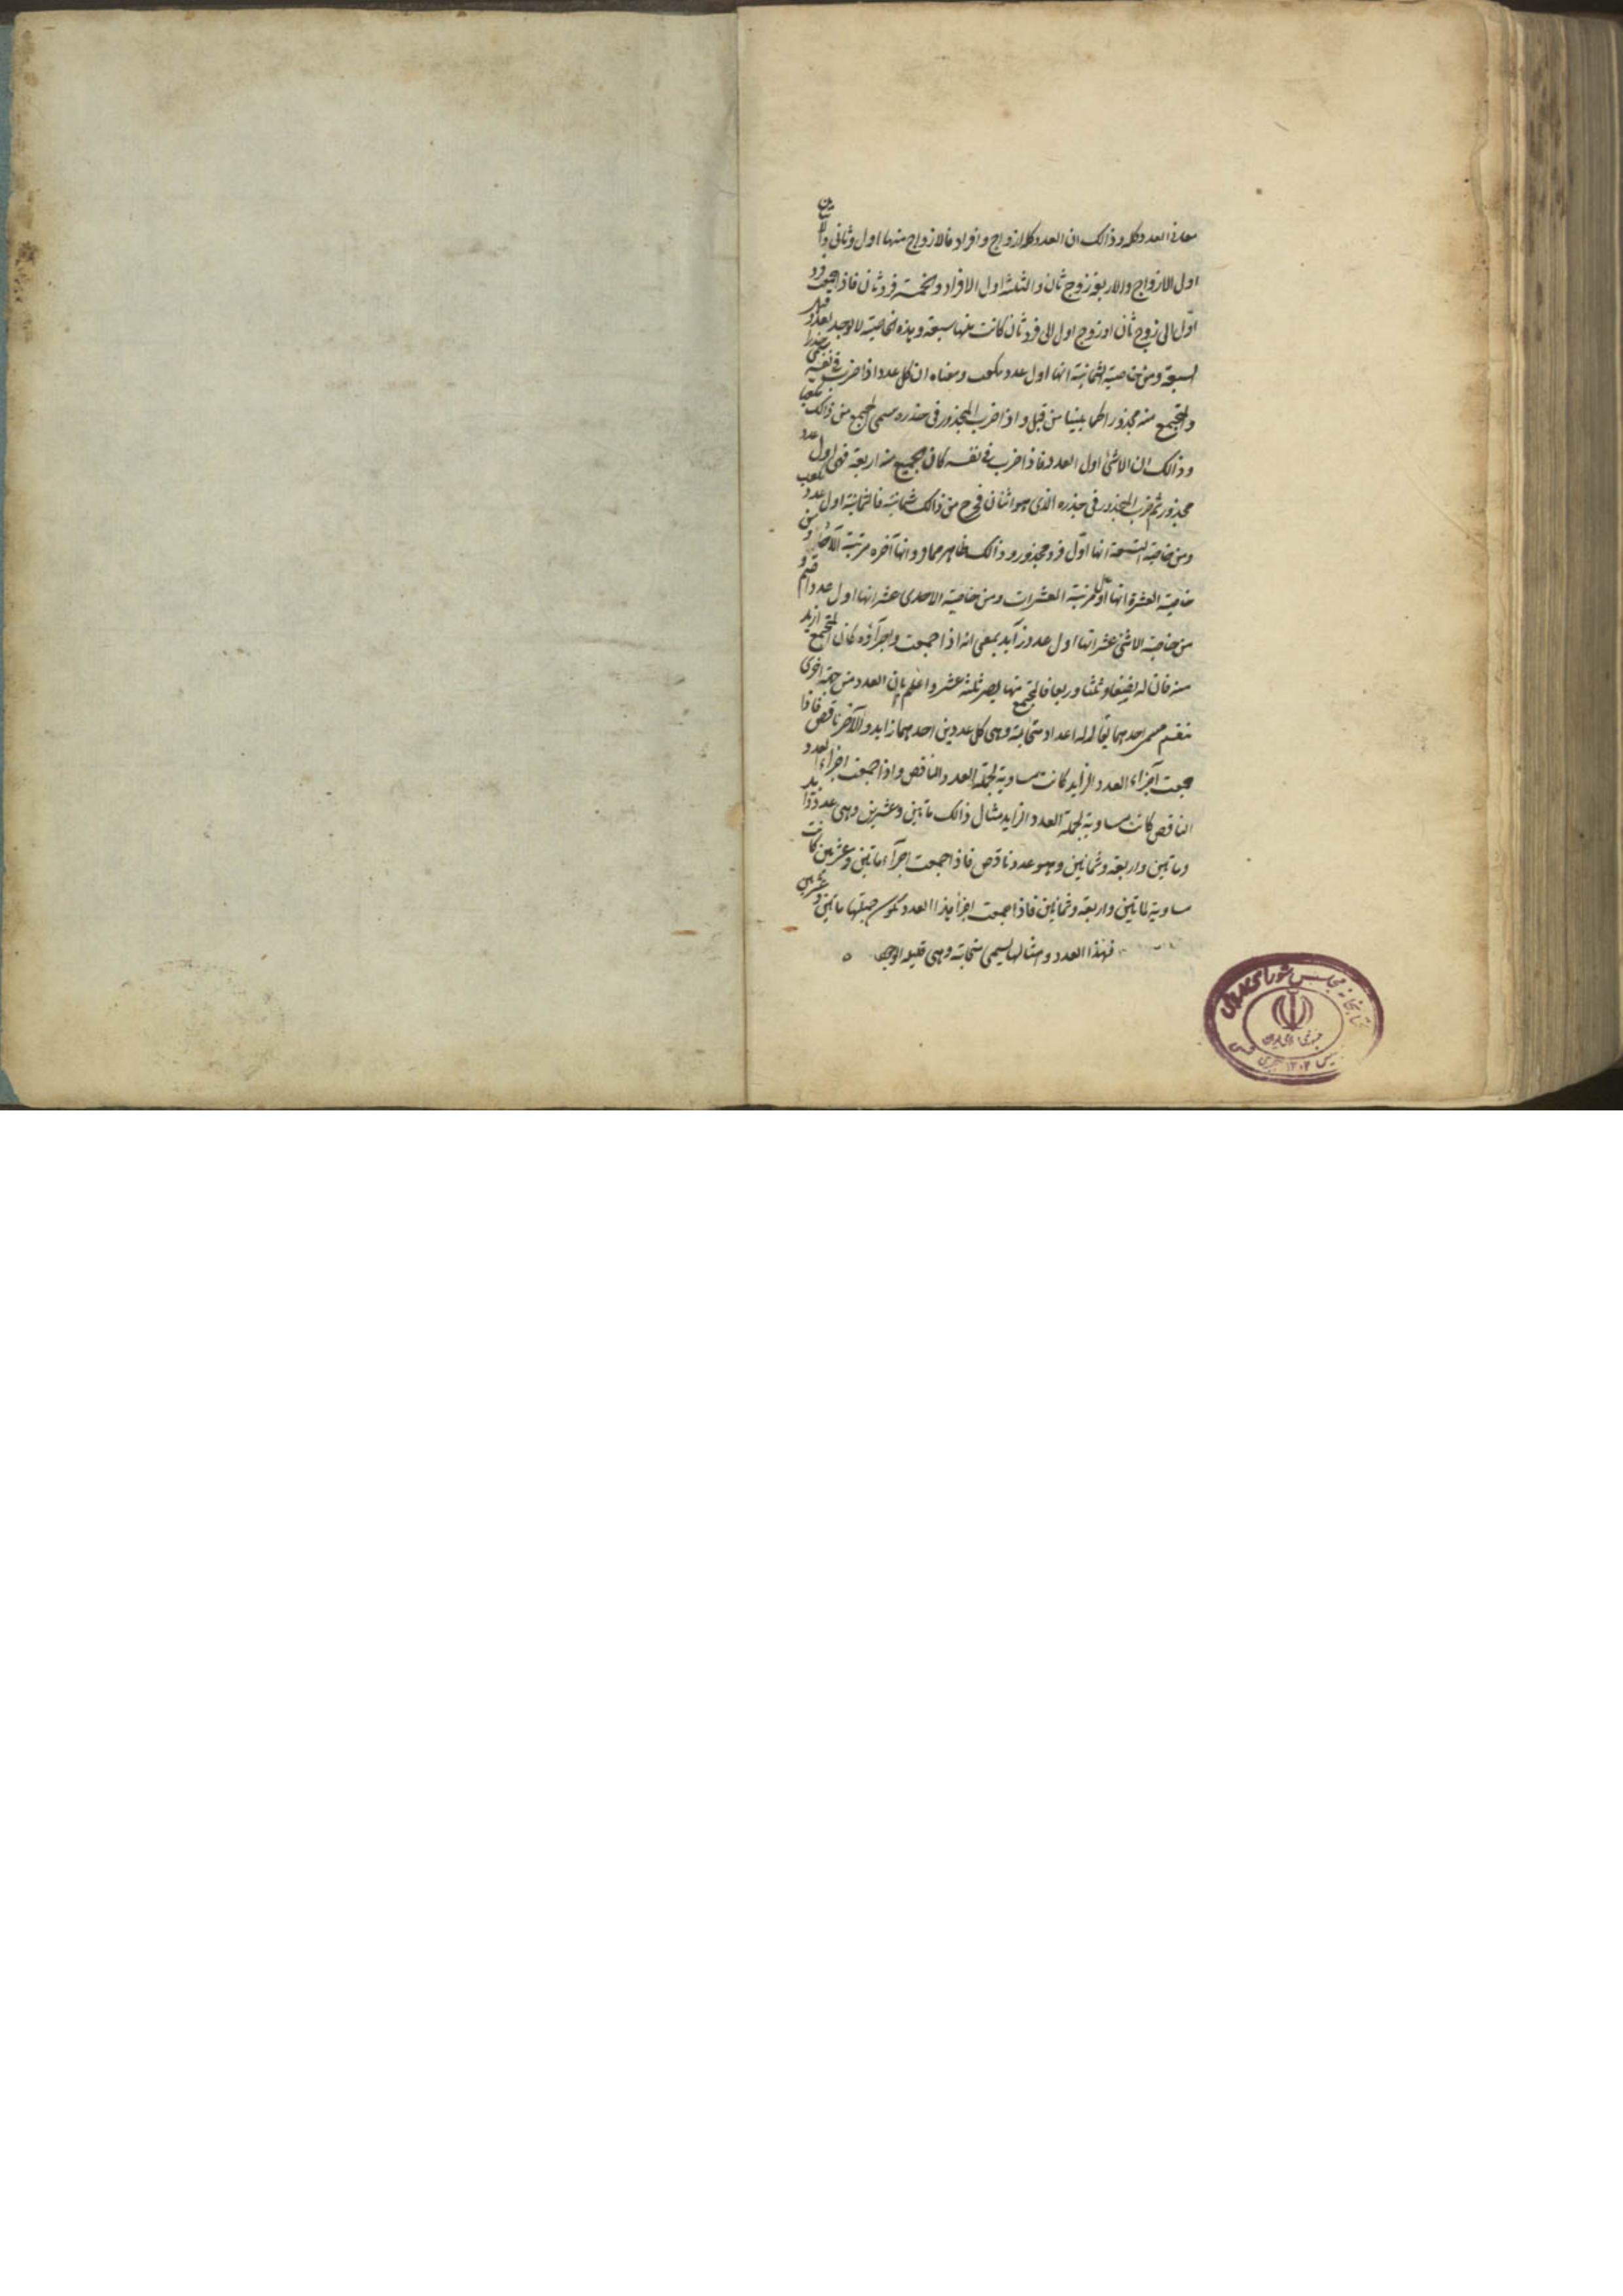 معانی العدد کله وذالک ان العدد کله ازواج و افراد فالازواج منها اول وثانی والاثنین
اول الازواج والاربعة زوج ثان والثلثة اول الافراد والخمسة فرد ثان فاذا جمعت فرد
اول الی زوج ثان او زوج اول الی فرد ثان کانت منها سبعة وهذه الخاصیة لا توجد لعدد قبل
السبعة ومن خاصیة الثمانیة انها اول عدد مکعب ومعناه ان کل عدد اذا ضرب فی نفسه سمی جذرا
والمجتمع منه مجذورا کما بینا من قبل واذا ضرب المجذور فی جذره سمی المجتمع من ذالک مکعبا
وذالک ان الاثنین اول العدد فاذا ضرب فی نفسه کان المجتمع منه اربعة فهی اول عدد
مجذور ثم ضرب المجذور فی جذره الذی هو اثنان فخرج من ذالک ثمانیة فالثمانیة اول عدد مکعب
ومن خاصیة التسعة انها اول فرد مجذور وذالک ظاهر وانها آخره مرتبة الآحاد ومن
خاصیة العشرة انها اول مرتبة العشرات ومن خاصیة الاحدی عشر انها اول عدد اصم و
من خاصیة الاثنی عشر انها اول عدد زاید بمعنی انه اذا جمعت اجزآؤه کان المجتمع ازید
منه فان له نصفا وثلثا وربعا فالمجتمع منها یصیر ثلثة عشر واعلم بان العدد من جهة اخری
ینقسم قسمین احدهما یقال له اعداد متحابة وهی کل عددین احدهما زاید والآخر ناقص فاذا
جمعت اجزاء العدد الزاید کانت مساویة لجملة العدد الناقص واذا جمعت اجزاء العدد
الناقص کانت مساویة لجملة العدد الزاید مثال ذالک ماتین وعشرین وهی عدد زاید
وماتین واربعة وثمانین وهو عدد ناقص فاذا جمعت اجزآء ماتین وعشرین کانت
مساویة لماتین واربعة وثمانین فاذا جمعت اجزا هذا العدد تکون جملتها ماتین وعشرین
فهذا العدد وامثالها یسمی متحابة وهی قلیلة الوجود ه
کتابخانه مجلس شورای اسلامی
جمهوری اسلامی ایران
تاسیس ۱۳۰۲ هجری شمسی